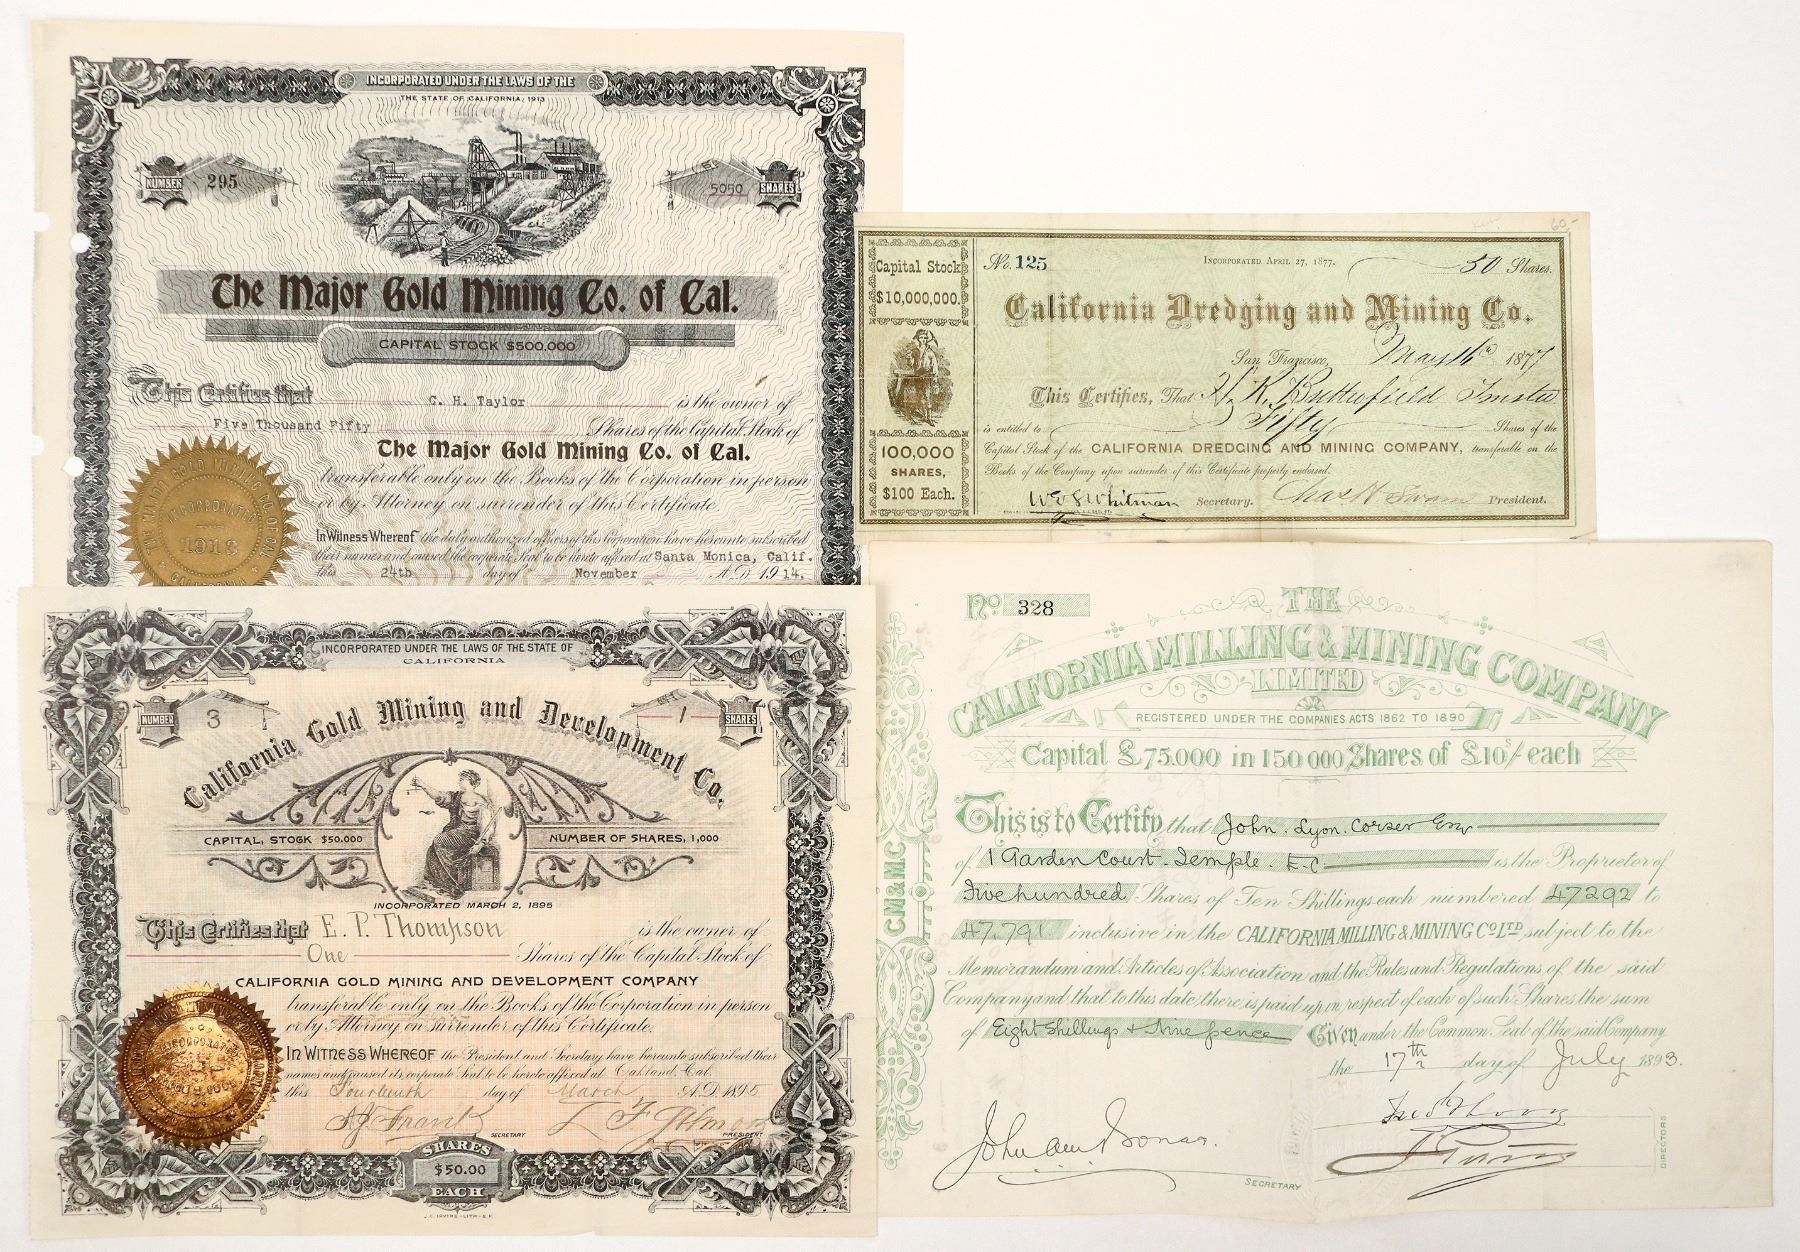 INCORPORATED UNDER THE LAWS OF THE
THE STATE OF CALIFORNIA, 1913
NUMBER 295
5050 SHARES
The Major Gold Mining Co. of Cal.
CAPITAL STOCK $500,000
This Certifies that C. H. Taylor is the owner of
Five Thousand Fifty Shares of the Capital Stock of
The Major Gold Mining Co. of Cal.
transferable only on the Books of the Corporation in person
or by Attorney on surrender of this Certificate.
In Witness Whereof the duly authorized officers of this Corporation have hereunto subscribed
their names and caused the corporate Seal to be hereto affixed at Santa Monica, Calif.
this 24th day of November A.D. 1914.
THE MAJOR GOLD MINING CO. OF CAL.
INCORPORATED
1913
CALIFORNIA
60-
Capital Stock
$10,000,000.
100,000
SHARES,
$100 Each.
No. 125
INCORPORATED APRIL 27, 1877.
50 Shares.
California Dredging and Mining Co.
San Francisco, May 16th 1877
This Certifies, That H. K. Butterfield Trustee
is entitled to Fifty Shares of the
Capital Stock of the CALIFORNIA DREDGING AND MINING COMPANY, transferable on the
Books of the Company upon surrender of this Certificate properly endorsed.
Whitman Secretary. Chas H Swain President.
INCORPORATED UNDER THE LAWS OF THE STATE OF
CALIFORNIA
NUMBER 3
1 SHARES
California Gold Mining and Development Co.
CAPITAL, STOCK $50.000
NUMBER OF SHARES, 1,000
INCORPORATED MARCH 2, 1895
This Certifies that E. P. Thompson is the owner of
One Shares of the Capital Stock of
CALIFORNIA GOLD MINING AND DEVELOPMENT COMPANY
transferable only on the Books of the Corporation in person
or by Attorney on surrender of this Certificate.
IN WITNESS WHEREOF the President and Secretary have hereunto subscribed their
names and caused its corporate Seal to be hereto affixed at Oakland, Cal.
this Fourteenth day of March A.D. 1895
Frank SECRETARY
PRESIDENT
SHARES
$50.00
EACH
J.C. IRVINE-LITH-S.F.
CM&MC
No 328
THE
CALIFORNIA MILLING & MINING COMPANY
LIMITED
REGISTERED UNDER THE COMPANIES ACTS 1862 TO 1890
Capital £75.000 in 150 000 Shares of £10s/- each
This is to Certify that John Lyon Corser Esqr
of 1 Garden Court Temple E.C is the Proprietor of
Five hundred Shares of Ten Shillings each numbered 47292 to
47.791 inclusive in the CALIFORNIA MILLING & MINING CO LTD, subject to the
Memorandum and Articles of Association and the Rules and Regulations of the said
Company and that to this date there is paid up in respect of each of such Shares the sum
of Eight Shillings & Nine pence Given under the Common Seal of the said Company
the 17th day of July 1893.
SECRETARY
DIRECTORS